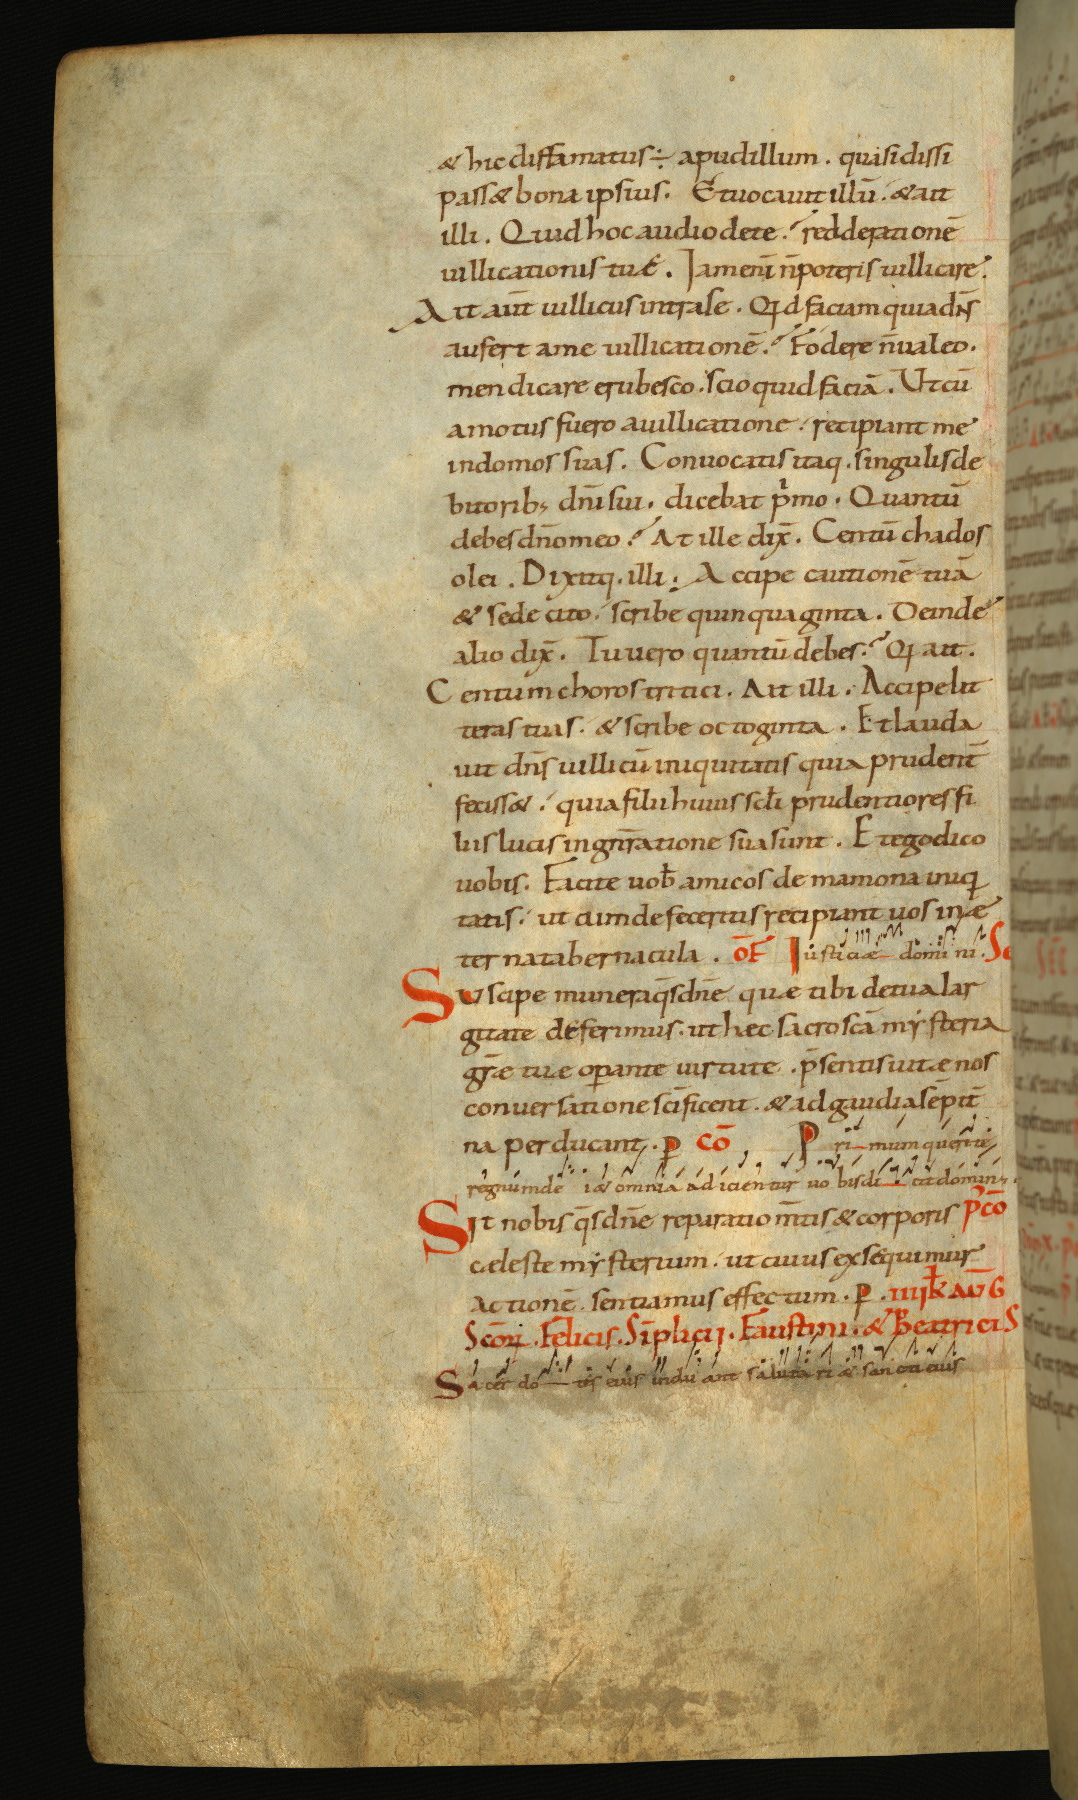 & hic diffamatus ÷ apud illum. quasi dissi
pass& bona ipsius. Et uocauit illū. & ait
illi. Quid hoc audio de te. redde rationē
uillicationis tuę. Iam enī n̄ poteris uillicare.
Ait aūt uillicus intra se. Qd faciam quia dn̄s
aufert a me uillicationē. Fodere n̄ ualeo.
mendicare erubesco. scio quid faciā. Ut cū
amotus fuero a uillicatione. recipiant me
in domos suas. Conuocatis itaq. singulis de
bitorib; dn̄i sui. dicebat pͥmo. Quantū
debes dn̄o meo. At ille dix̄. Centū chados
olei. Dixitq. illi. Accipe cautionē tuā
& sede cito. scribe quinquaginta. Deinde
alio dix̄. Tu uero quantū debes. Qi ait.
Centum choros tritici. Ait illi. Accipe lit
teras tuas. & scribe octoginta. Et lauda
uit dn̄s uillicū iniquitatis quia prudent̄
feciss&. quia filii huius scłi prudentiores fi
liis lucis in gn̄ratione sua sunt. Et ego dico
uobis. Facite uob̄ amicos de mamona iniqi
tatis. ut cum defeceritis recipiant uos in æ
terna tabernacula. ōF Iusticiæ domini. Sē
Suscipe munera q̄s dn̄e quæ tibi de tua lar
gitate deferimus. ut hec sacroscā mẏsteria
gr̄æ tuæ oꝑante uirtute. p̄sentis uitæ nos
conuersatione scīficent. & ad gaudia sēpit̄
na perducant. ꝑ cō Primum querite
regnum de i & omnia adicientur uobis di cit domin;
Sit nobis q̄s dn̄e reparatio m̄tis & corporis p̄cō
cæleste mẏsterium. ut cuius exsequimur
actionē. sentiamus effectum. ꝑ. iiii k̄ aūG
Scōꝝ. Felicis. Sīplicii. Faustini. & BeatriciS
Sacerdo tes eius indu ant saluta ri & sancti eius